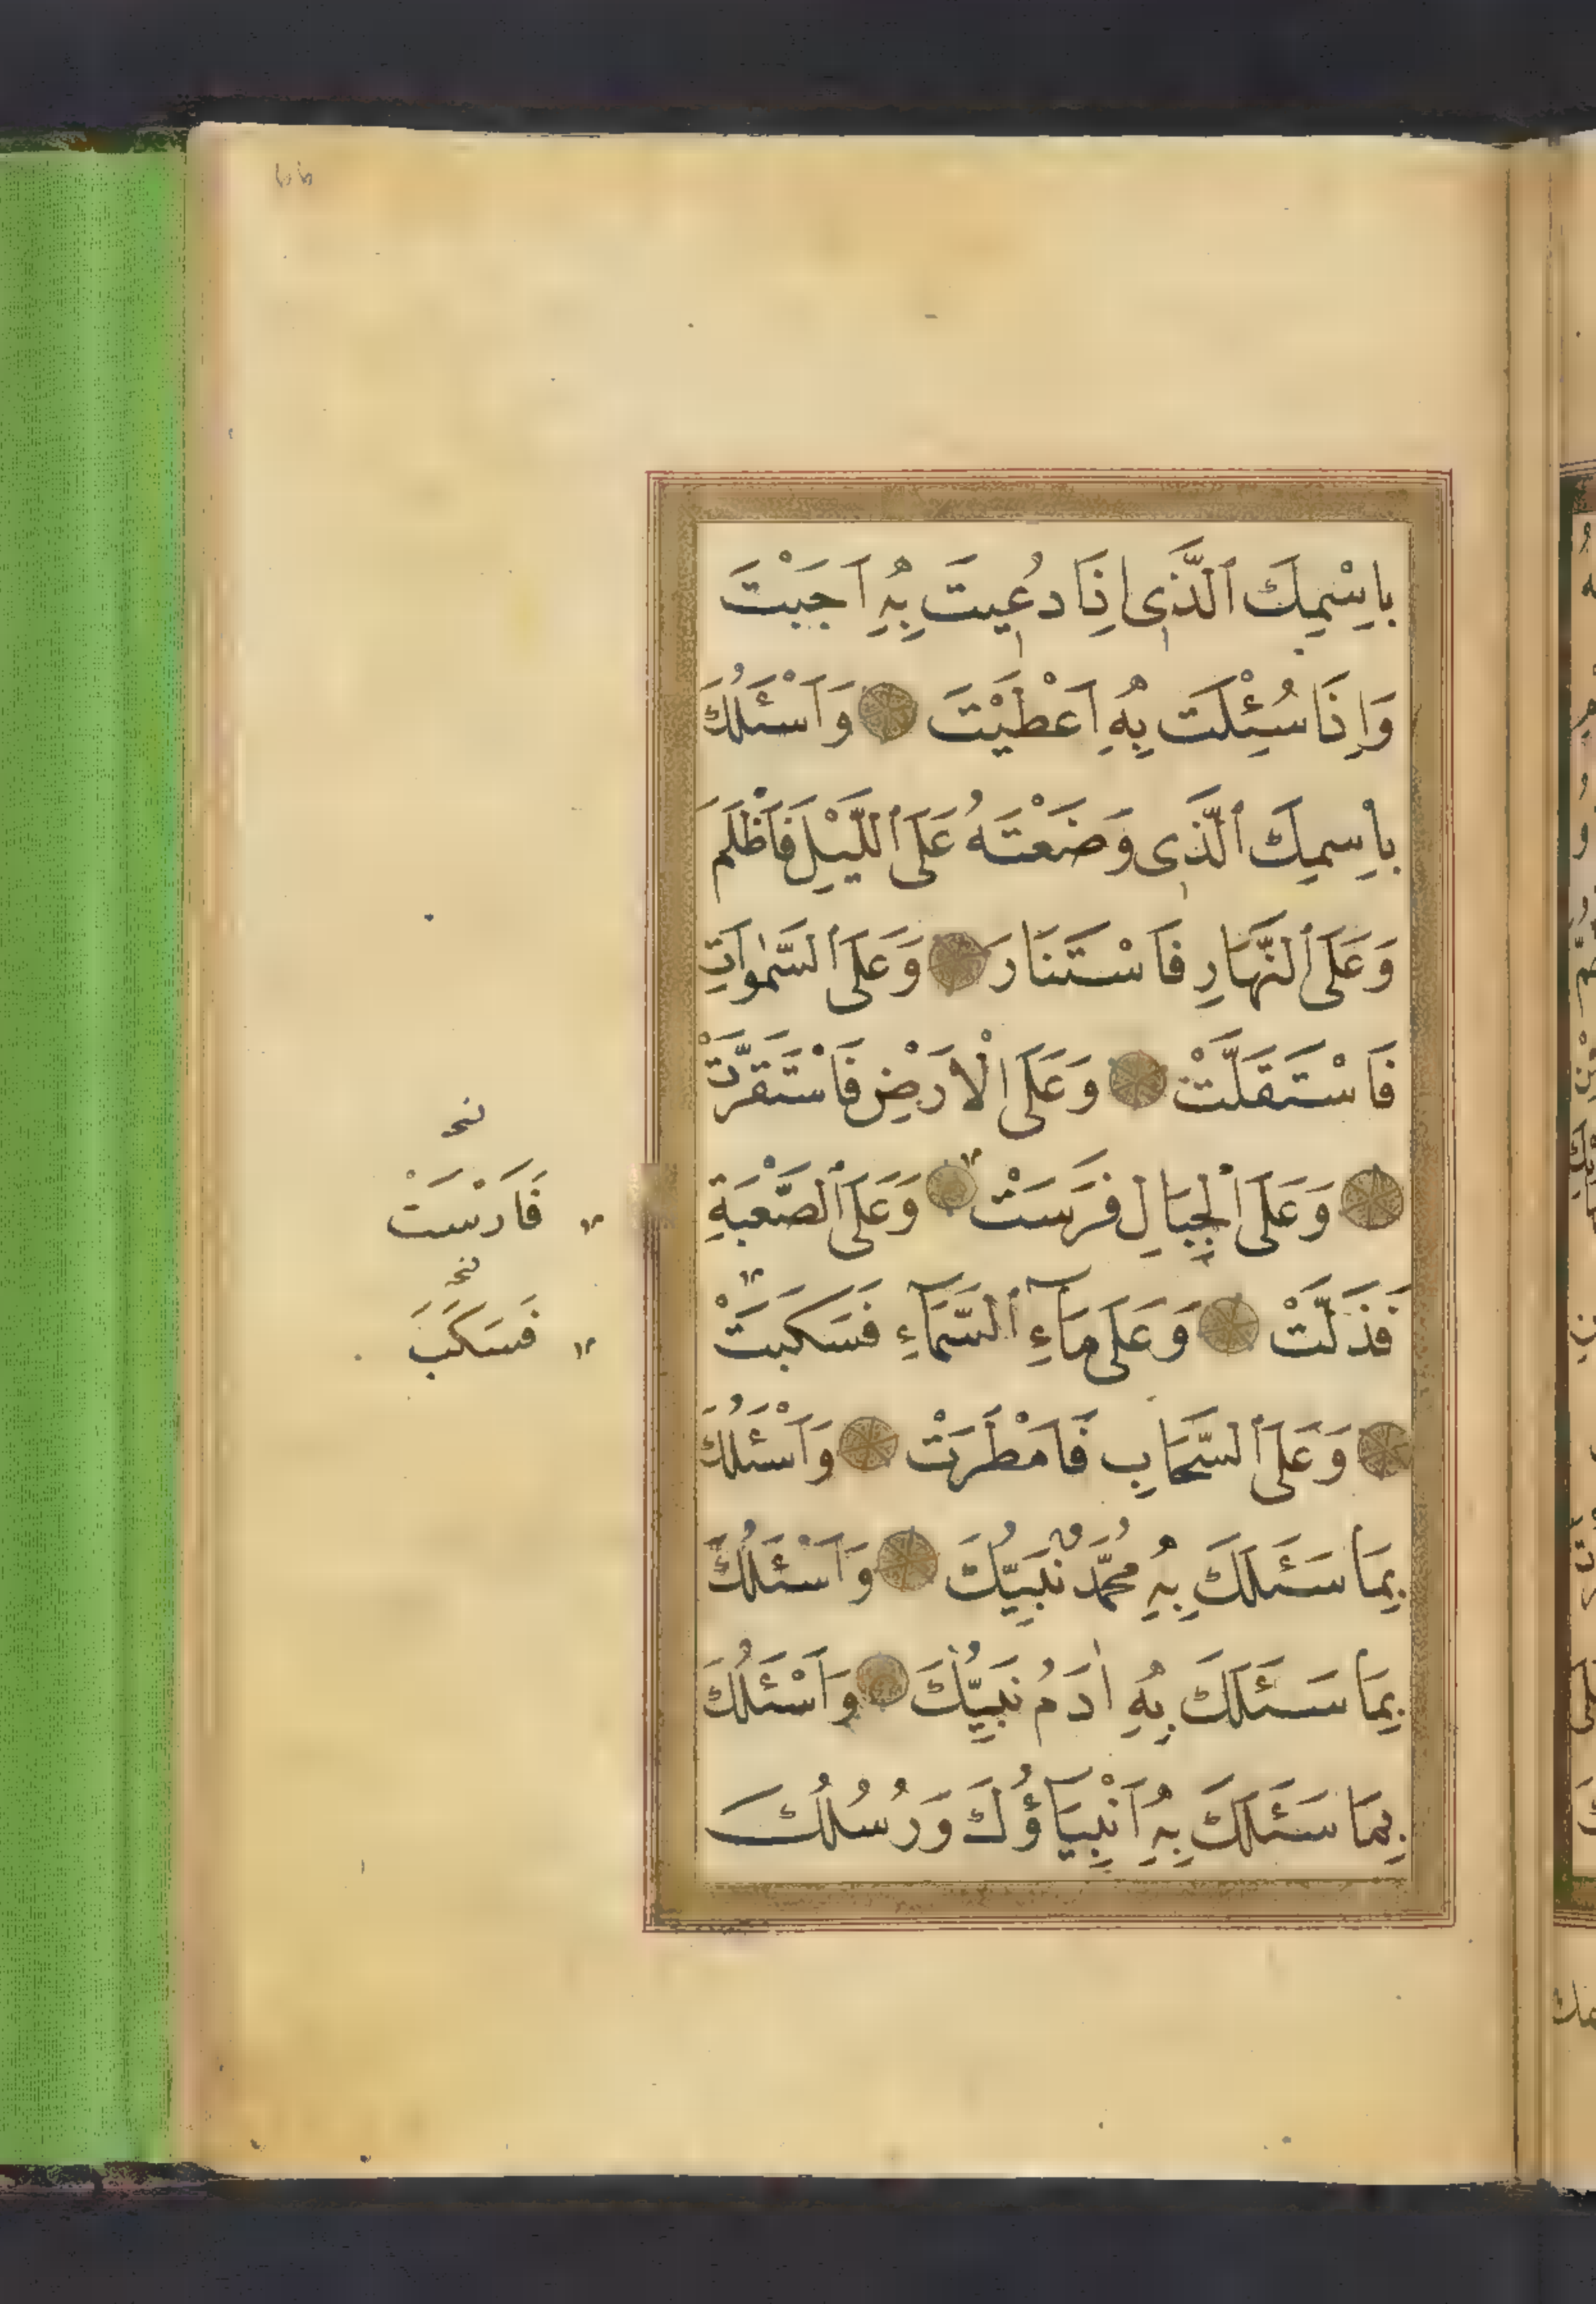 بِاِسْمِكَ ٱلَّذَى اِذَا دُعِيتَ بِهِ اَجَبْتَ
وَاِذَا سُئِلْتَ بِهِ اَعْطَيْتَ وَاَسْئَلُكَ
بِاِسمِكَ ٱلَّذَى وَضَعْتَهُ عَلَى ٱللَّيْلِ فَاَظْلَمَ
وَعَلَى ٱلنَّهَارِ فَاسْتَنَارَ وَعَلَى ٱلسَّمٰوَاتِ
فَاسْتَقَلَّتْ وَعَلَى الْاَرَضِ فَاسْتَقَرَّتْ
وَعَلَى ٱلْجِبَالِ فَرَسَتْ وَعَلَى ٱلصَّعْبَةِ
فَذَلَّتْ وَعَلَى مَآءِ ٱلسَّمَآءِ فَسَكَبَتْ
وَعَلَى ٱلسَّحَابِ فَاَمْطَرَتْ وَاَسْئَلُكَ
بِمَا سَئَلَكَ بِهِ مُحَمَّدٌ نَبِيُّكَ وَاَسْئَلُكَ
بِمَا سَئَلَكَ بِهِ اٰدَمُ نَبِيُّكَ وَاَسْئَلُكَ
بِمَا سَئَلَكَ بِهِ اَنْبِيَآؤُكَ وَرُسُلُكَ
نخـ
فَارَسْتَ
نخـ
فَسَكَبَ